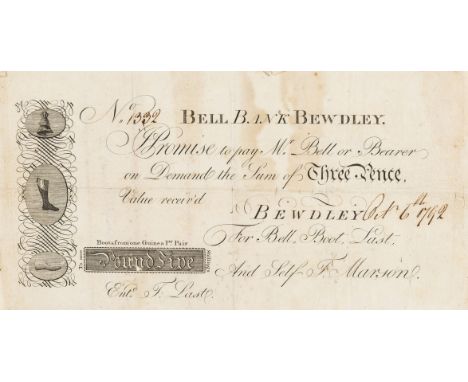 No. 1332 BELL BANK BEWDLEY.
Promise to pay Mr. Bell or Bearer
on Demand the Sum of Three Pence.
Value receiv'd
BEWDLEY Octr 6th 1792
For Bell, Boot, Last,
Boots from one Guinea Pr. Pair
Pound Five
And Self F. Marson.
Entd. F. Last.